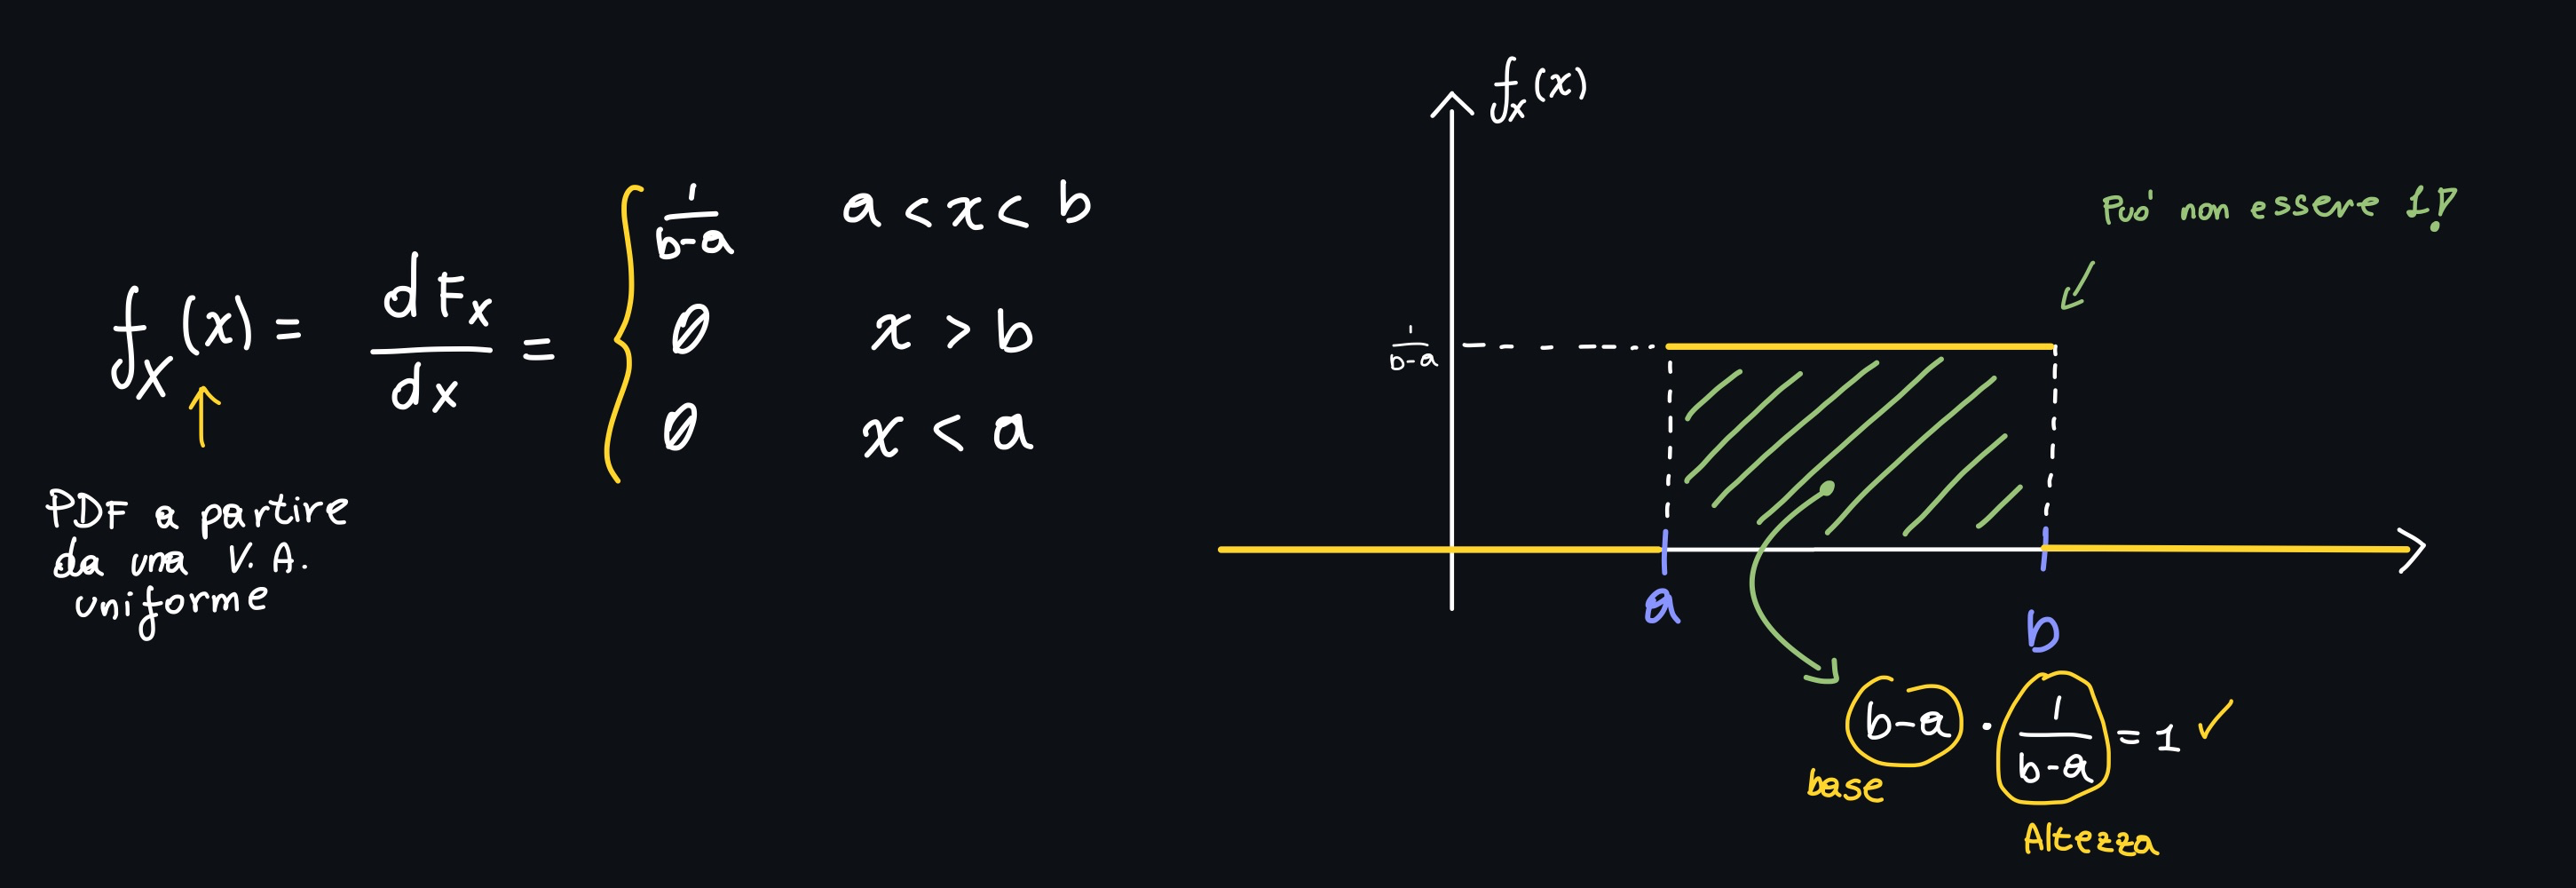 f_X(x) = dF_X/dx = { 1/(b-a)   a < x < b
0   x > b
0   x < a
PDF a partire
da una V.A.
uniforme
f_X(x)
Puo' non essere 1!
1/(b-a)
a
b
b-a · 1/(b-a) = 1 ✓
base
Altezza